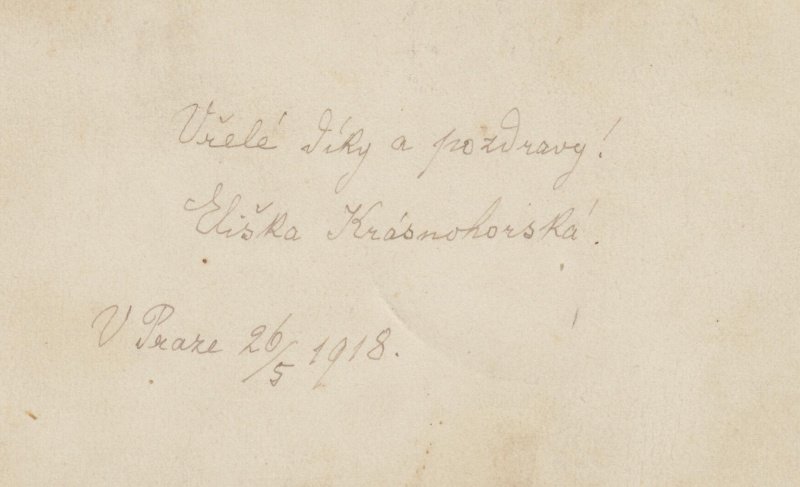 Vřelé díky a pozdravy!
Eliška Krásnohorská.
V Praze 26/5 1918.